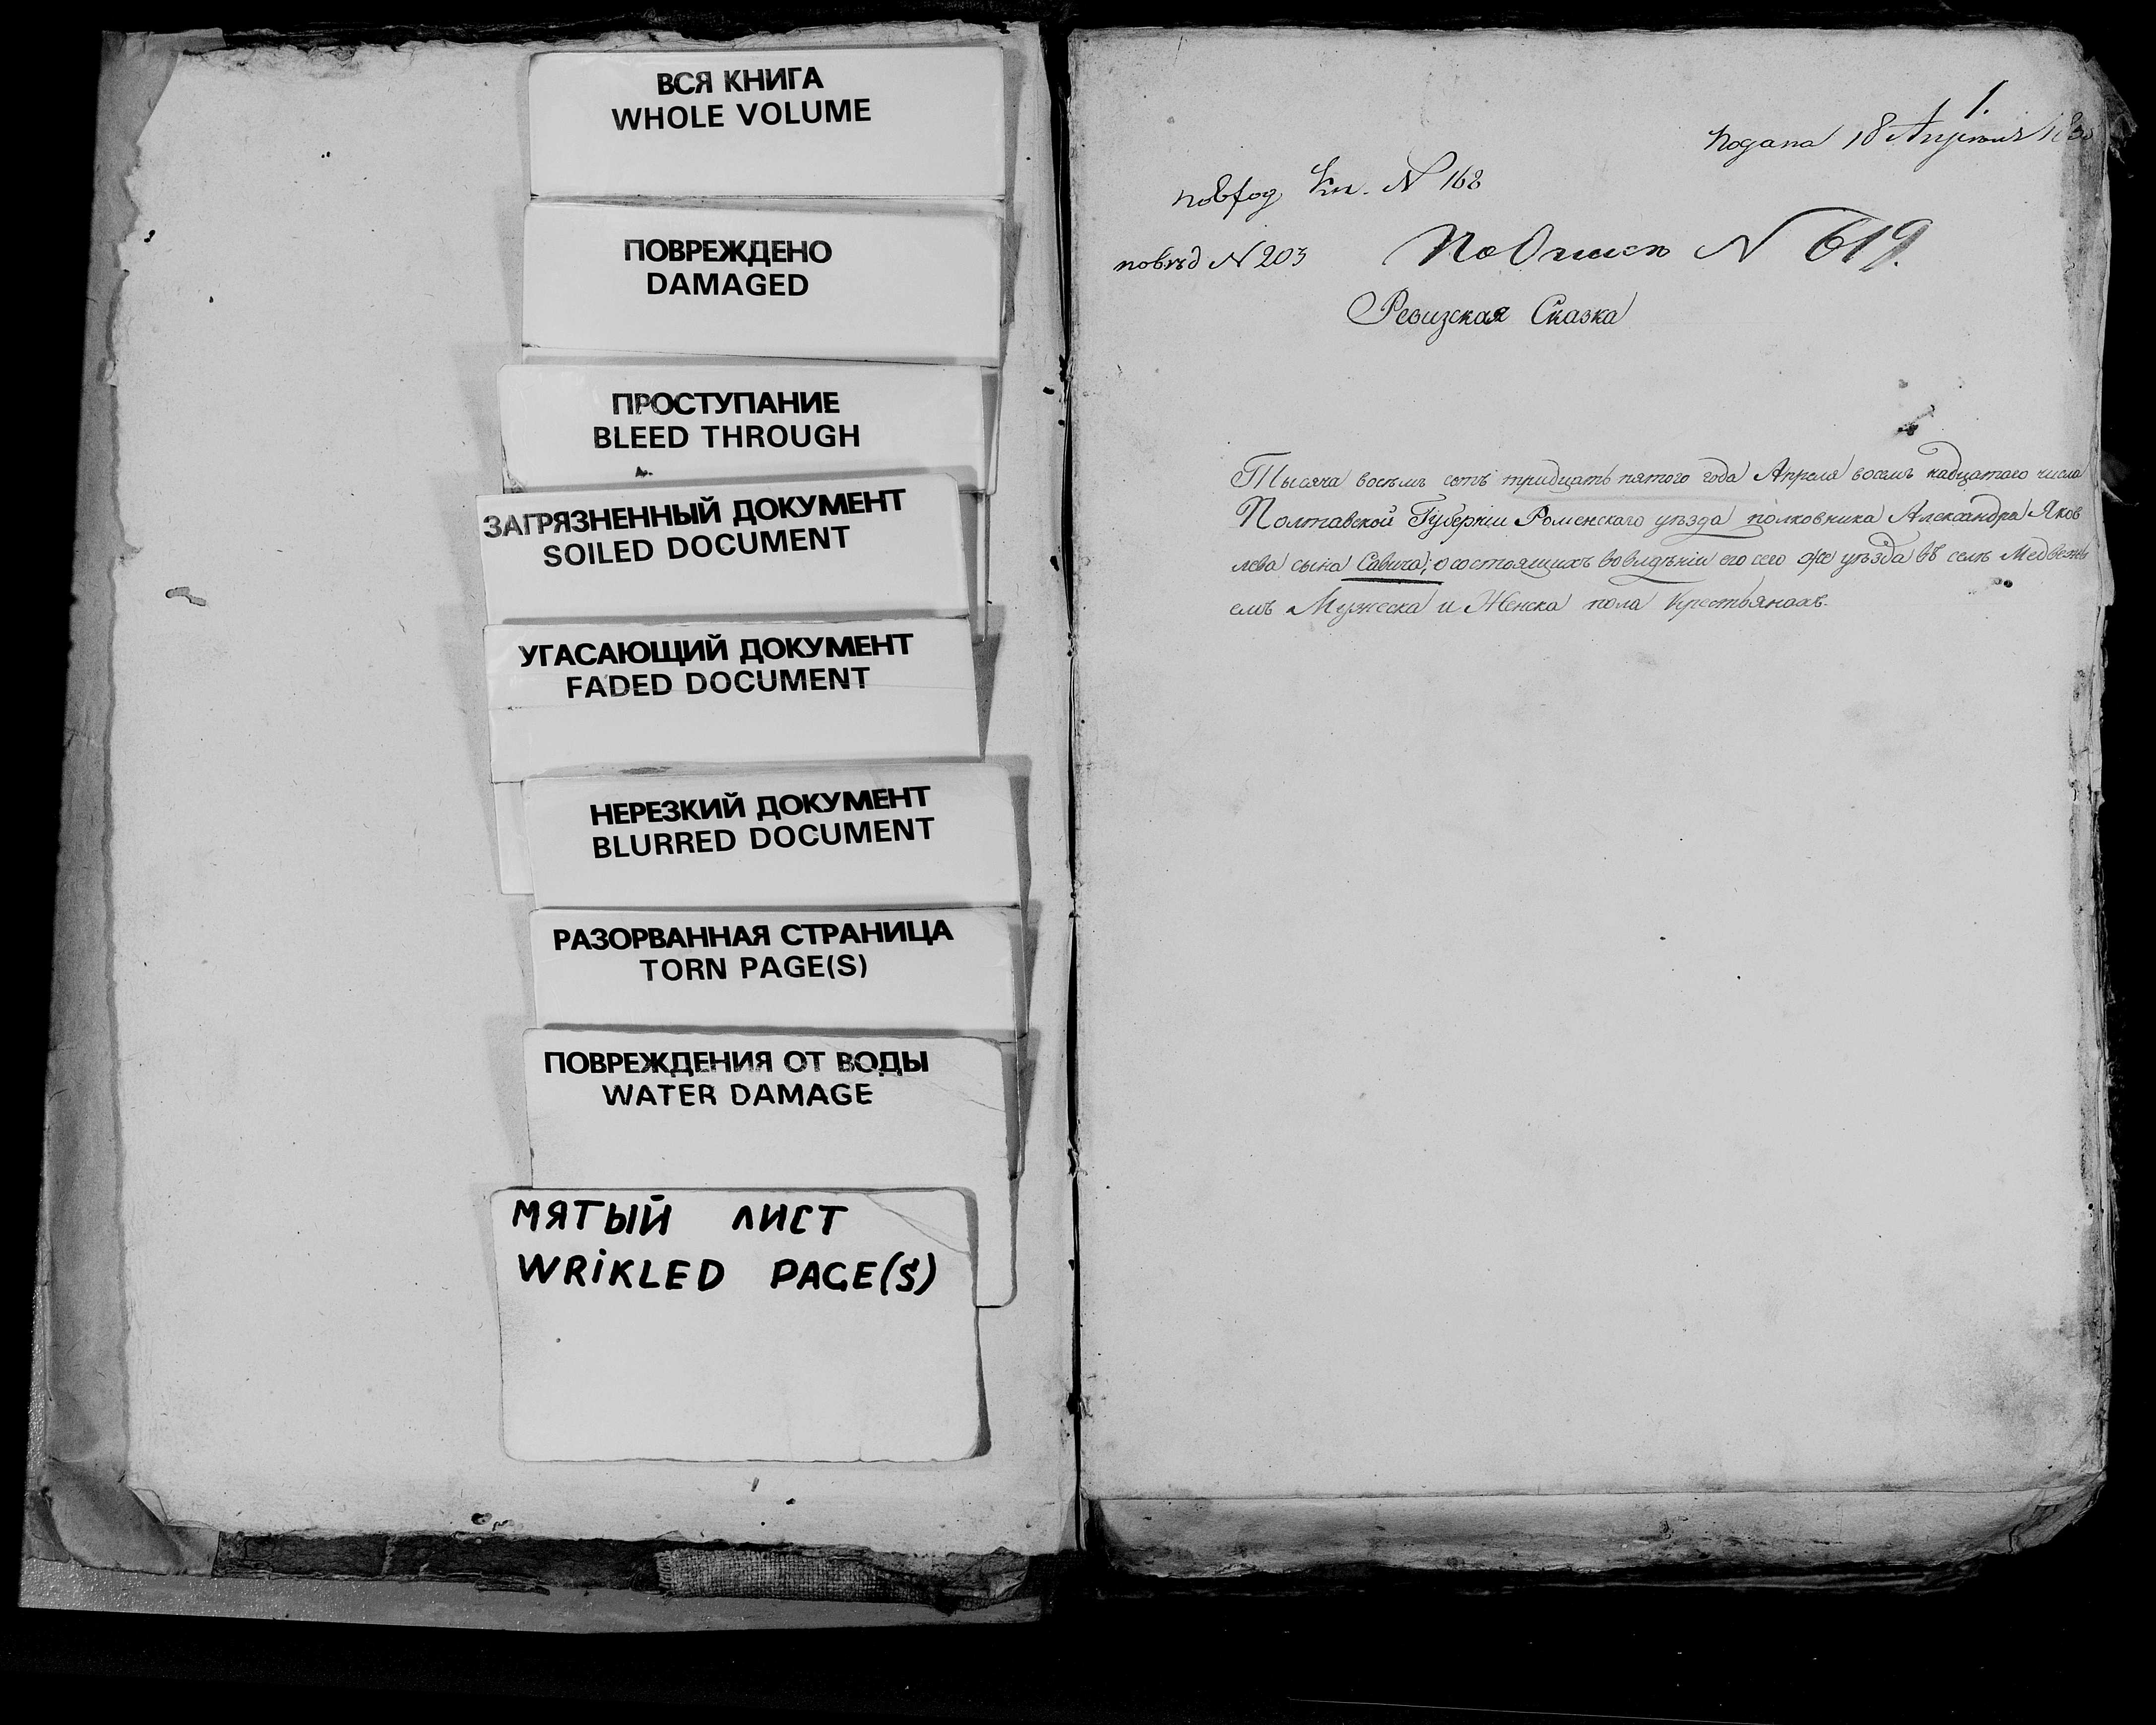 ВСЯ КНИГА
WHOLE VOLUME
ПОВРЕЖДЕНО
DAMAGED
ПРОСТУПАНИЕ
BLEED THROUGH
ЗАГРЯЗНЕННЫЙ ДОКУМЕНТ
SOILED DOCUMENT
УГАСАЮЩИЙ ДОКУМЕНТ
FADED DOCUMENT
НЕРЕЗКИЙ ДОКУМЕНТ
BLURRED DOCUMENT
РАЗОРВАННАЯ СТРАНИЦА
TORN PAGE(S)
ПОВРЕЖДЕНИЯ ОТ ВОДЫ
WATER DAMAGE
МЯТЫЙ ЛИСТ
WRIKLED PAGE(S)
1.
подана 18 Апреля
Кн. N 168
N 203
N 619.
Ревизская Сказка
Тысяча восемь сотъ тридцать пятого года Апреля восемь надцатаго числа
Полтавской Губернiи Роменскаго уѣзда полковника Александра Яков
лева сына Савича, о состоящихъ вовладѣнiи его сего же уѣзда въ селѣ Медвежь
емъ Мужеска и Женска пола Крестьянахъ.